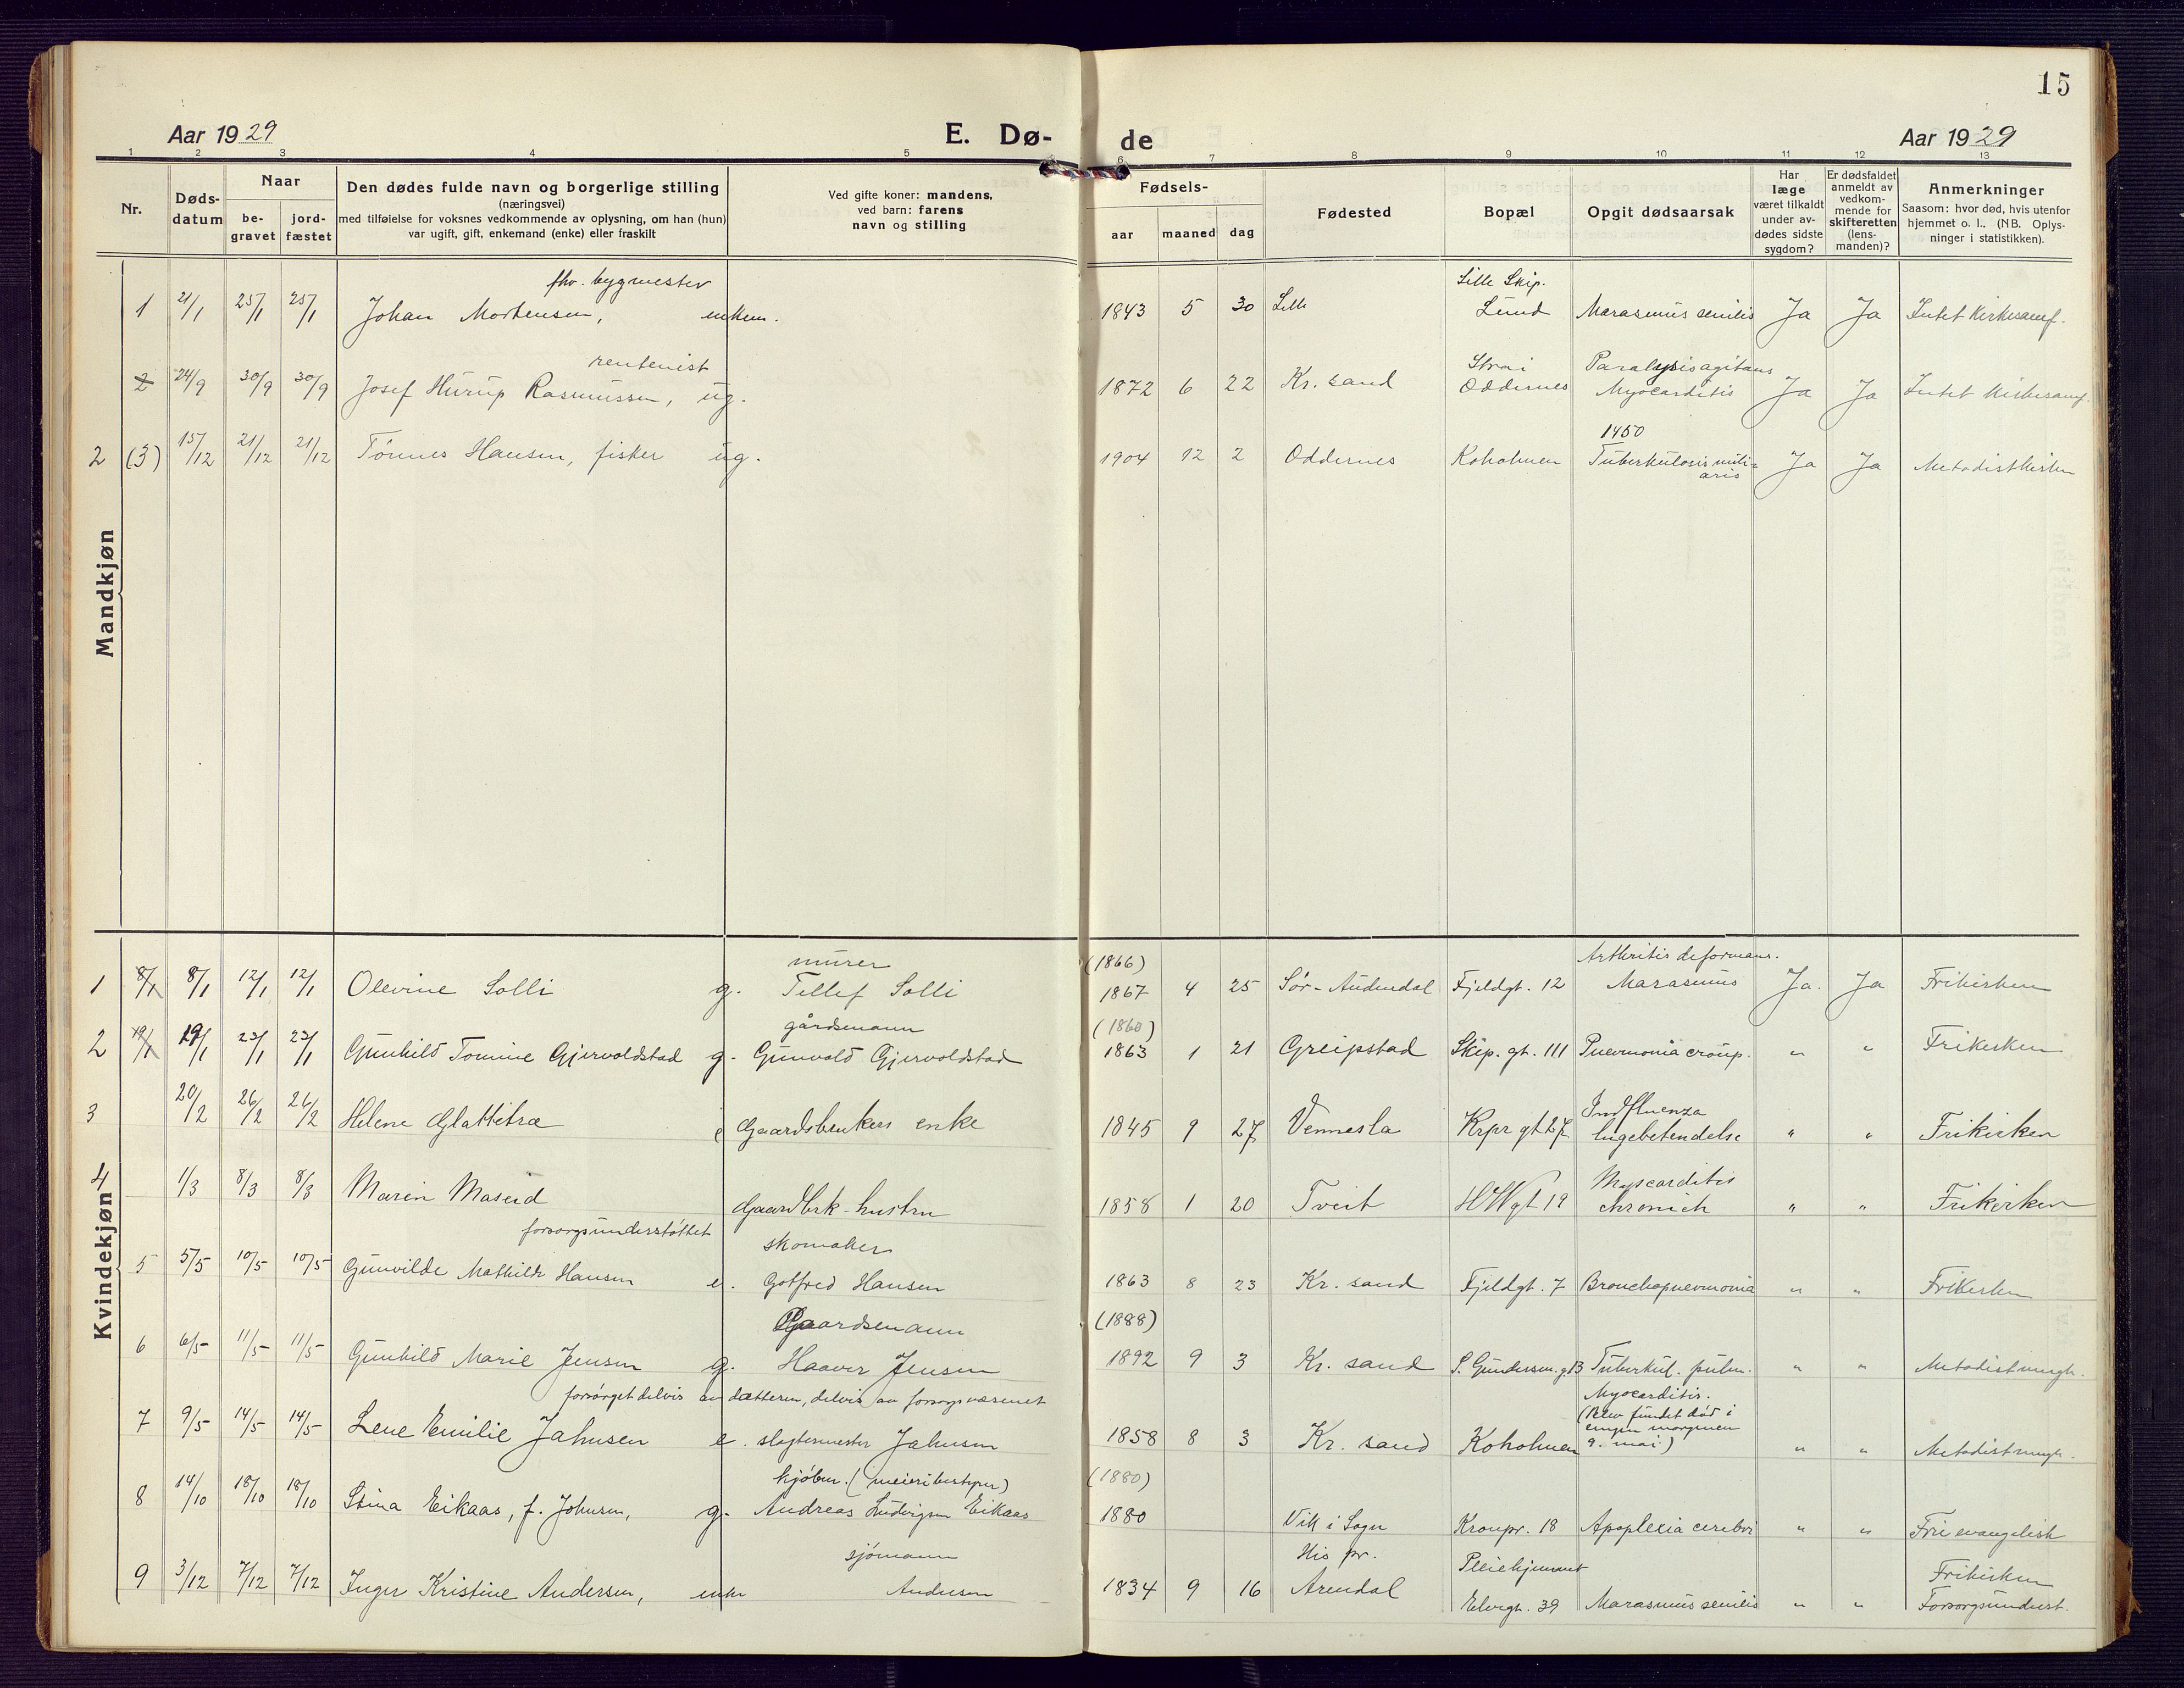 15
Aar 1929 E. Dø- de Aar 1929
1 2 3 4 5 6 7 8 9 10 11 12 13
Nr.
Døds-
datum
Naar
be-
gravet
jord-
fæstet
Den dødes fulde navn og borgerlige stilling
(næringsvei)
med tilføielse for voksnes vedkommende av oplysning, om han (hun)
var ugift, gift, enkemand (enke) eller fraskilt
Ved gifte koner: mandens,
ved barn: farens
navn og stilling
Fødsels-
aar maaned dag
Fødested
Bopæl
Opgit dødsaarsak
Har
læge
været tilkaldt
under av-
dødes sidste
sygdom?
Er dødsfaldet
anmeldt av
vedkom-
mende for
skifteretten
(lens-
manden)?
Anmerkninger
Saasom: hvor død, hvis utenfor
hjemmet o. l.. (NB. Oplys-
ninger i statistikken).
Mandkjøn
fhv. bygmester Lille Skip.
1 21/1 25/1 25/1 Johan Mortensen, enkem. 1843 5 30 Lille Lund Marasmus senilis Ja Ja Intet Kirkesamf.
rentenist Strai Paralysis agitans
2 24/9 30/9 30/9 Josef Hurup Rasmussen, ug. 1872 6 22 Kr. sand Oddernes Myocarditis Ja Ja Intet Kirkesamf.
1450
2 (3) 15/12 21/12 21/12 Tønnes Hansen, fisker ug. 1904 12 2 Oddernes Koholmen Tuberkulosis mili= Ja Ja Metodistkirken
aris
Kvindekjøn
murer (1866) Arthritis deformans.
1 8/1 8/1 12/1 12/1 Olevine Solli g. Tellef Solli 1867 4 25 Sør-Audnedal Fjeldgt. 12 Marasmus Ja. Ja Frikirken
gårdsmann (1860)
2 19/1 19/1 23/1 23/1 Gunhild Tomine Gjervoldstad g. Gunvald Gjervoldstad 1863 1 21 Greipstad Skip. gt. 111 Pneumonia croup. " " Frikirken
Indfluenza
3 20/2 26/2 26/2 Helene Glattetræ e Gaardsbrukers enke 1845 9 27 Vennesla Krpr gt 27 lugebetendelse " " Frikirken
Myocarditis
4 1/3 8/3 8/3 Maren Moseid Gaardbrk-hustru 1858 1 20 Tveit HWgt 19 chronich " " Frikirken
forsorgsunderstøttet skomaker
5 5/5 10/5 10/5 Gunvilde Mathilde Hansen e. Gotfred Hansen 1863 8 23 Kr. sand Fjeldgt. 7 Bronchopneumonia " " Frikirken
Gaardsmann (1888)
6 6/5 11/5 11/5 Gunhild Marie Jensen g. Haaver Jensen 1892 9 3 Kr. sand S. Gundersen. gt 3 Tuberkul. pulm. " " Metodistmngh.
forsørget delvis av datteren, delvis av forsorgsvæsenet Myocarditis.
(Blev fundet død i
7 9/5 14/5 14/5 Lene Emilie Jahnsen e. slagtermester Jahnsen 1858 8 3 Kr. sand Koholmen sengen morgenen " " Metodistmngh.
9. mai)
kjøbm. (meieribestyrer) (1880)
8 14/10 18/10 18/10 Stina Eikaas, f. Johnsen, g. Andreas Ludvigsen Eikaas 1880 Vik i Sogn Kronpr. 18 Apoplexia cerebri " " Fri evangelisk
sjømann His pr. Pleiehjemmet Frikirken
9 3/12 7/12 7/12 Inger Kristine Andersen, enke Andersen 1834 9 16 Arendal Elvegt. 39 Marasmus senilis " " Forsorgsunderst.